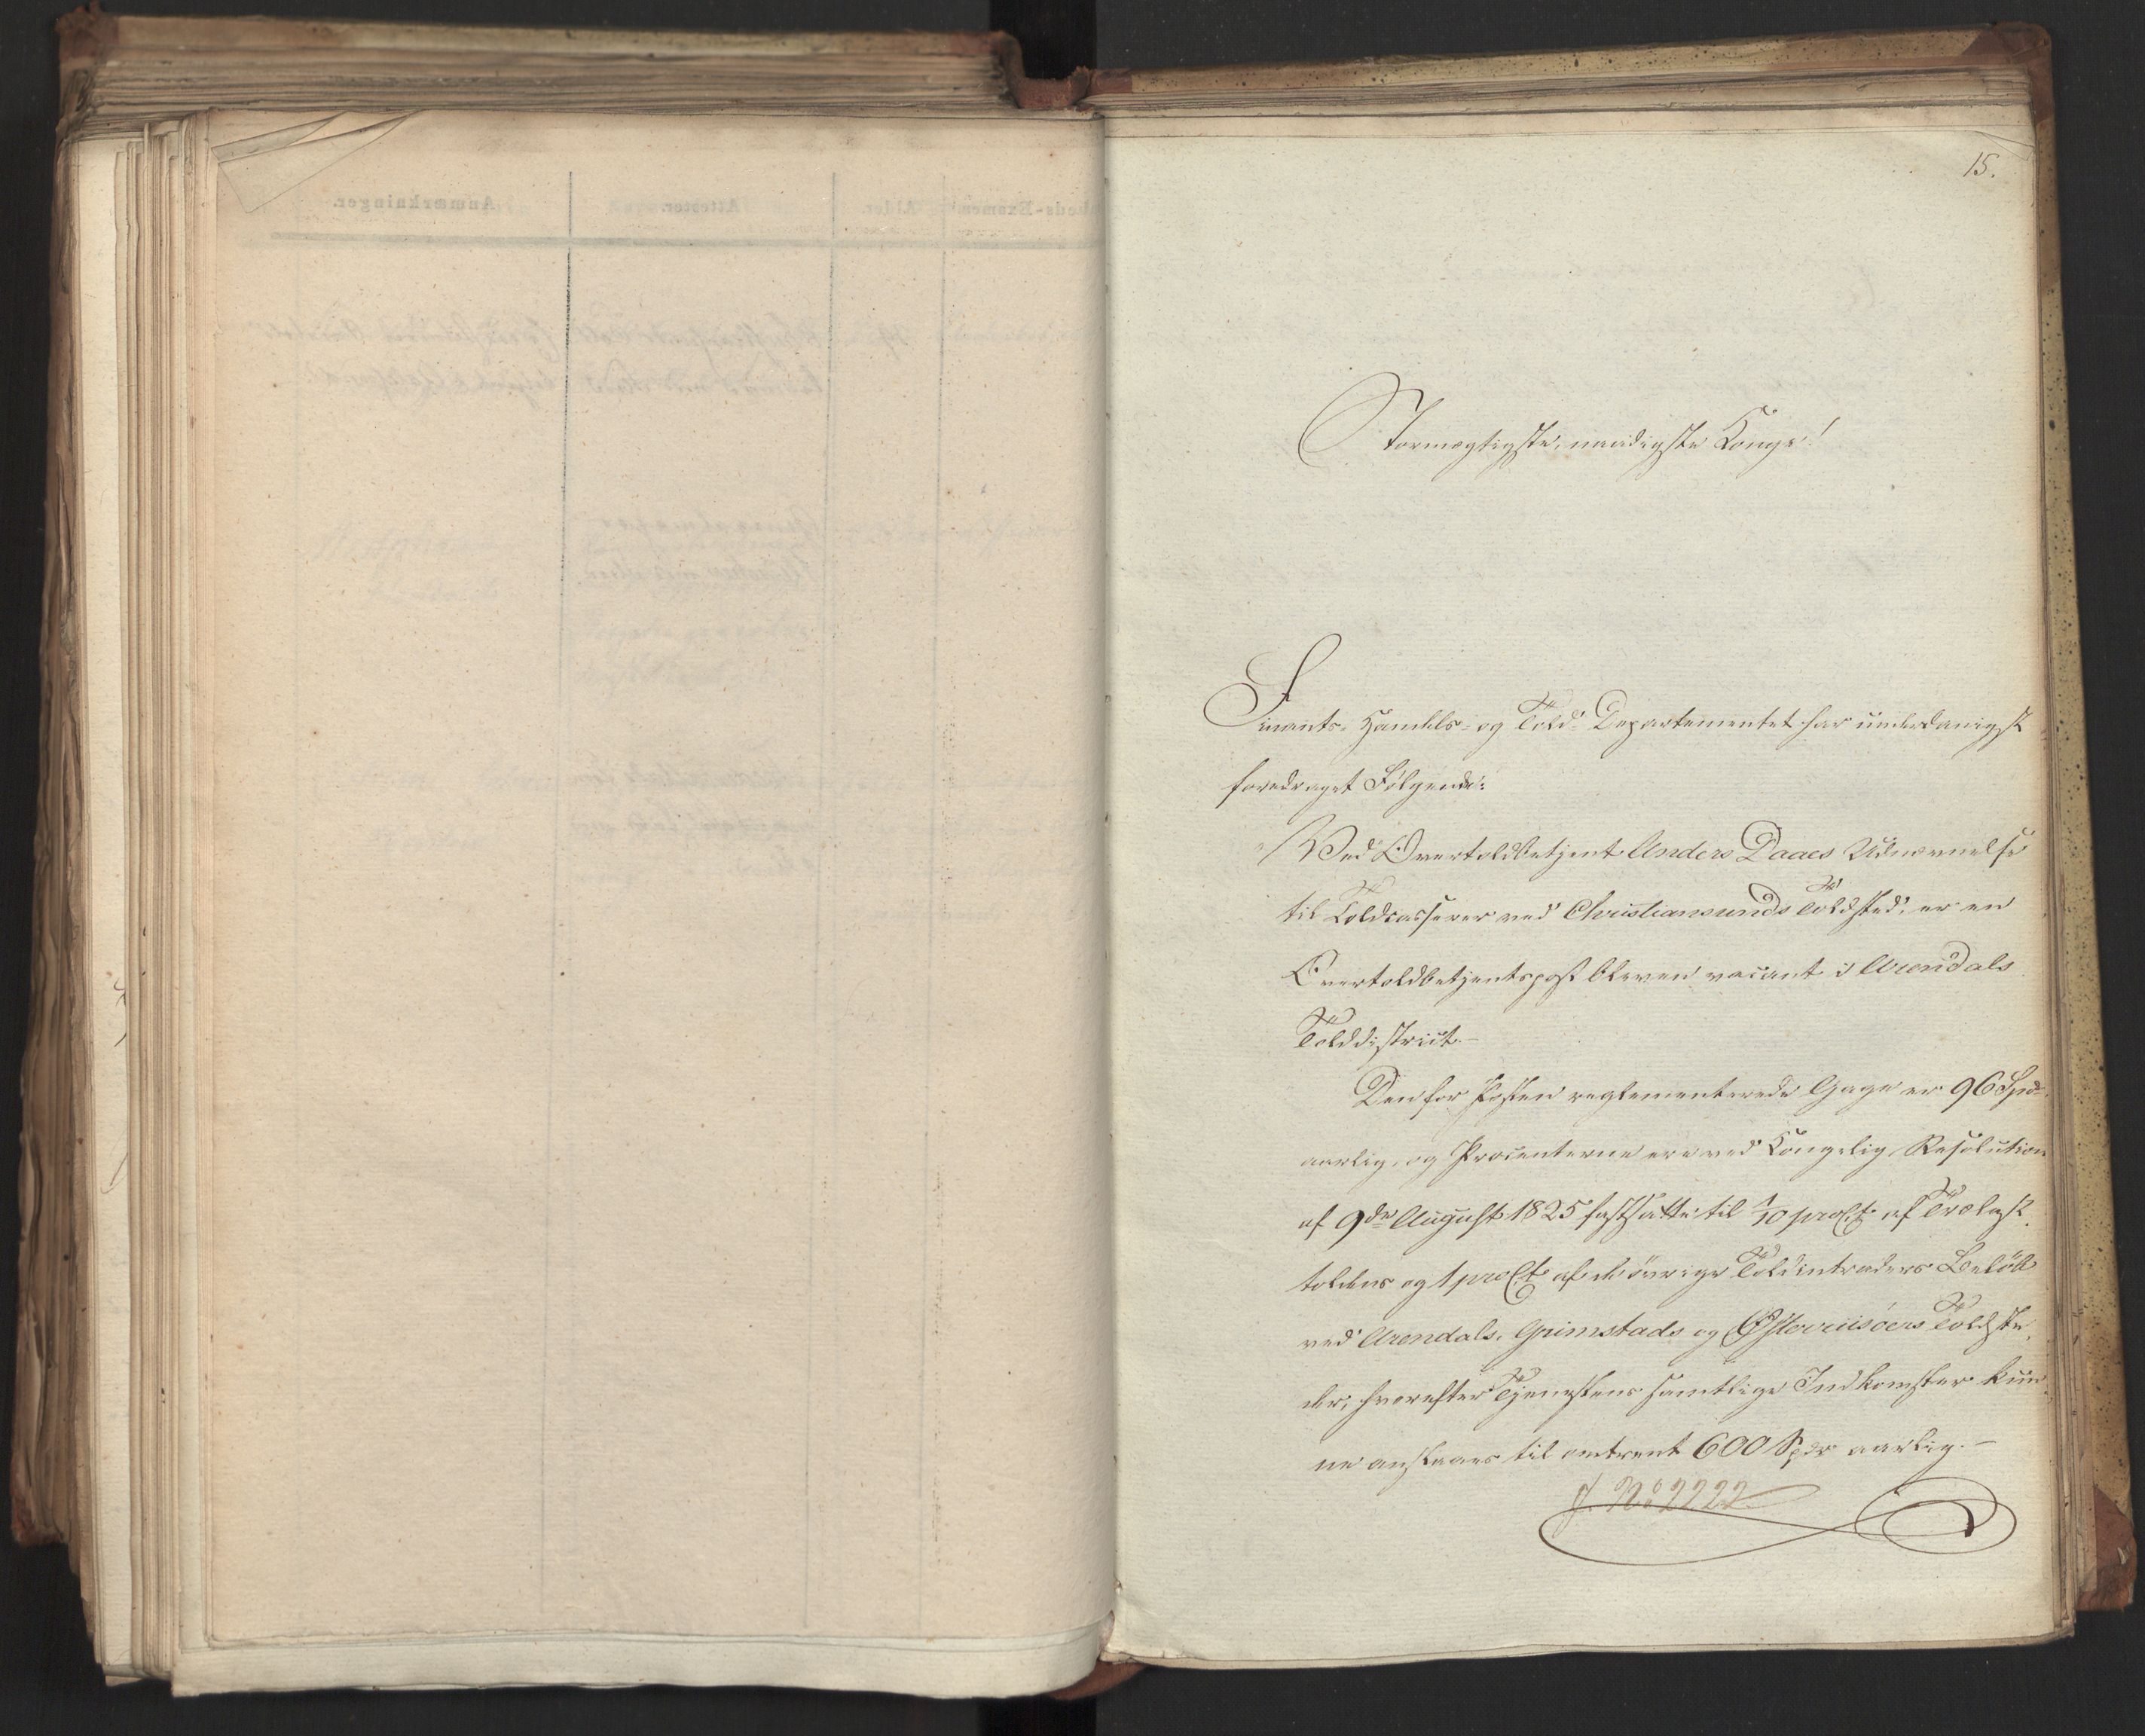 15.
Stormægtigste, naadigste Konge!
Finants- Handels- og Told-Departementet har underdanigst
foredraget Følgende:
"Ved Overtoldbetjent Anders Daaes Udnævnelse
til Toldcasserer ved Christiansunds Toldsted, er en
Overtoldbetjentspost bleven vacant i Arendals
Tolddistrict.-
Den for Posten reglementerede Gage er 96 Spd
aarlig, og Procenterne ere ved Kongelig Resolution
af 9de August 1825 fastsatte til 1/10 proCt. af Trælast-
toldens og 1 proCt. af de övrige Toldintraders Belöb
ved Arendals, Grimstads og Østerriisöers Toldste-
der, hvorefter Tjenestens samtlige Indkomster kun-
ne anslaaes til omtrent 600 Spdr aarlig.-
J. No 2222
Anmærkninger.
Attester.
Alder.